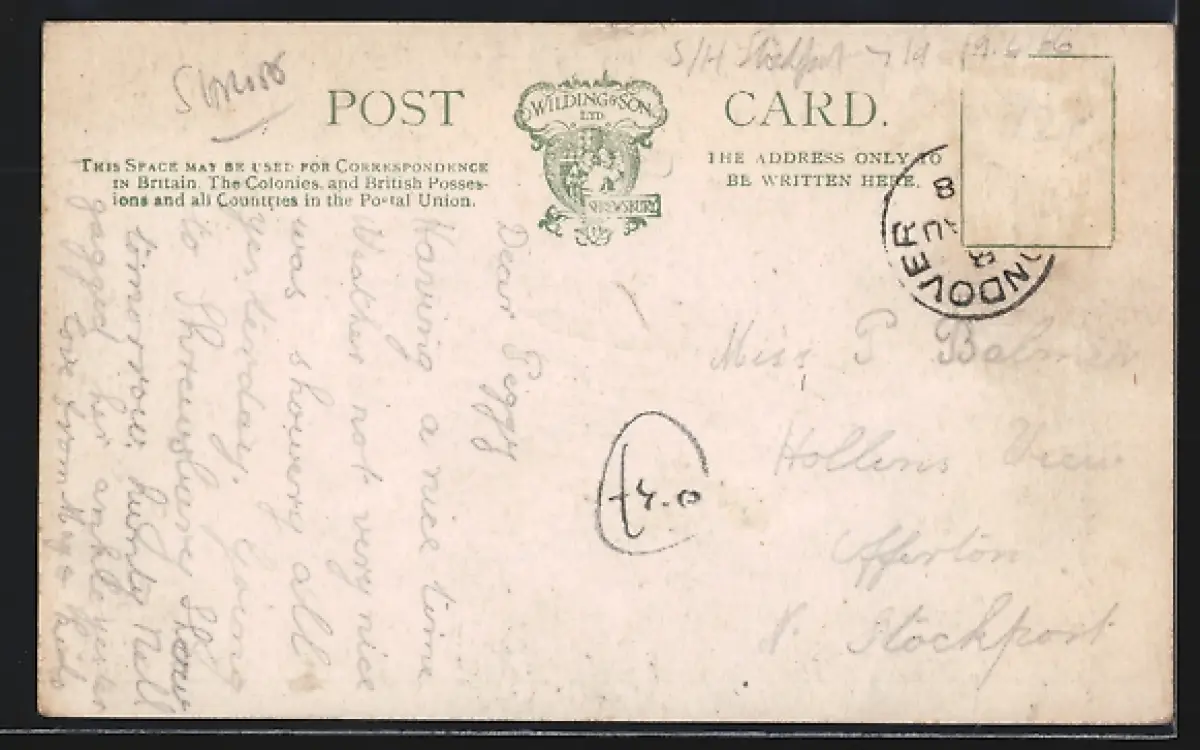 S/H Stockport 19.6.66
POST CARD.
WILDING & SON
LTD.
SHREWSBURY
THIS SPACE MAY BE USED FOR CORRESPONDENCE
IN Britain, The Colonies, and British Posses-
ions and all Countries in the Postal Union.
THE ADDRESS ONLY TO
BE WRITTEN HERE.
Dear Peggy
Having a nice time
Weather not very nice
was showery all
yesterday. Going
to Shrewsbury
tomorrow. Nell
gagged her ankle yester
love from
Miss P Balmer
Hollins View
Offerton
Nr Stockport
£4.0